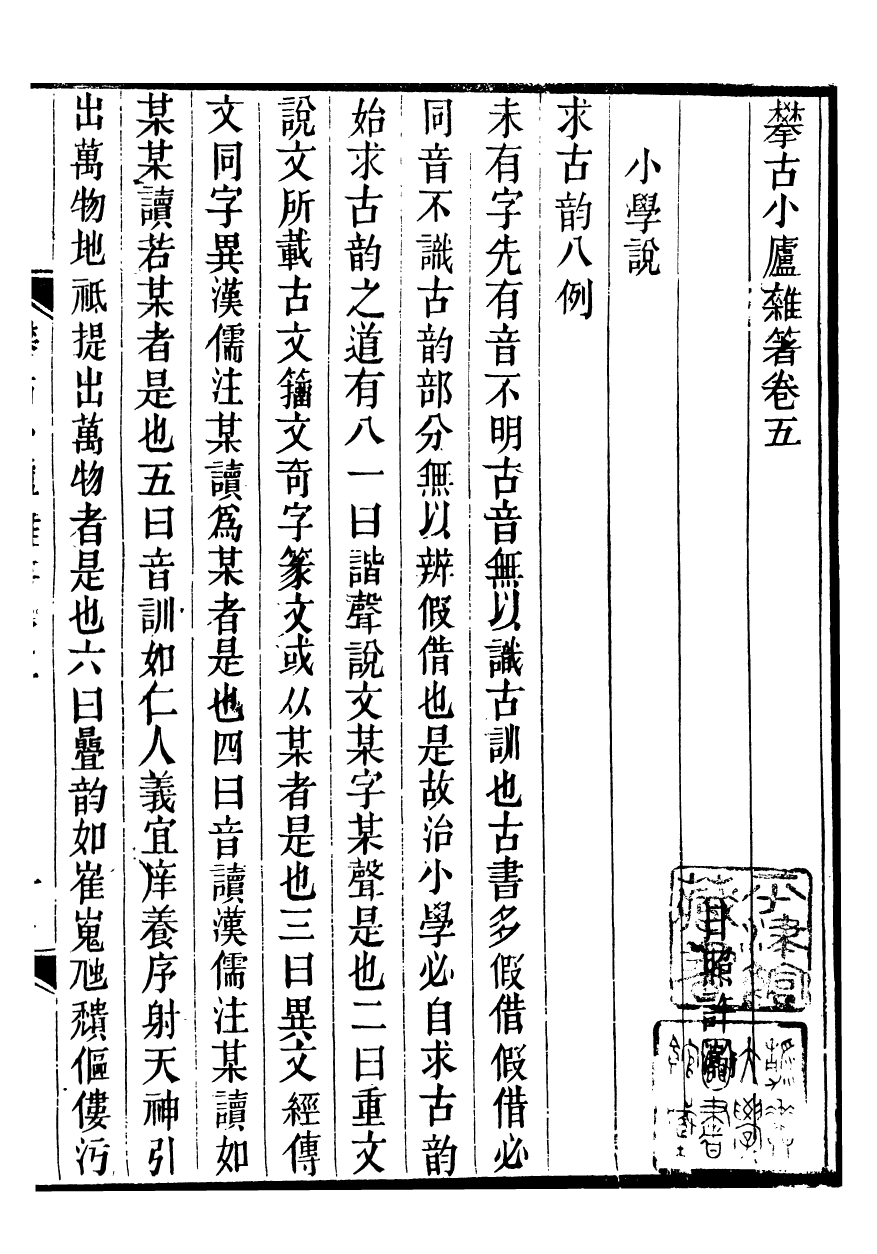 攀古小廬雜箸卷五
日照許瀚
小學說
求古韵八例
未有字先有音不明古音無以識古訓也古書多假借假借必
同音不識古韵部分無以辨假借也是故治小學必自求古韵
始求古韵之道有八一曰諧聲說文某字某聲是也二曰重文
說文所載古文籀文奇字篆文或从某者是也三曰異文經傳
文同字異漢儒注某讀爲某者是也四曰音讀漢儒注某讀如
某某讀若某者是也五曰音訓如仁人義宜庠養序射天神引
出萬物地祇提出萬物者是也六曰疊韵如崔嵬虺穨傴僂污